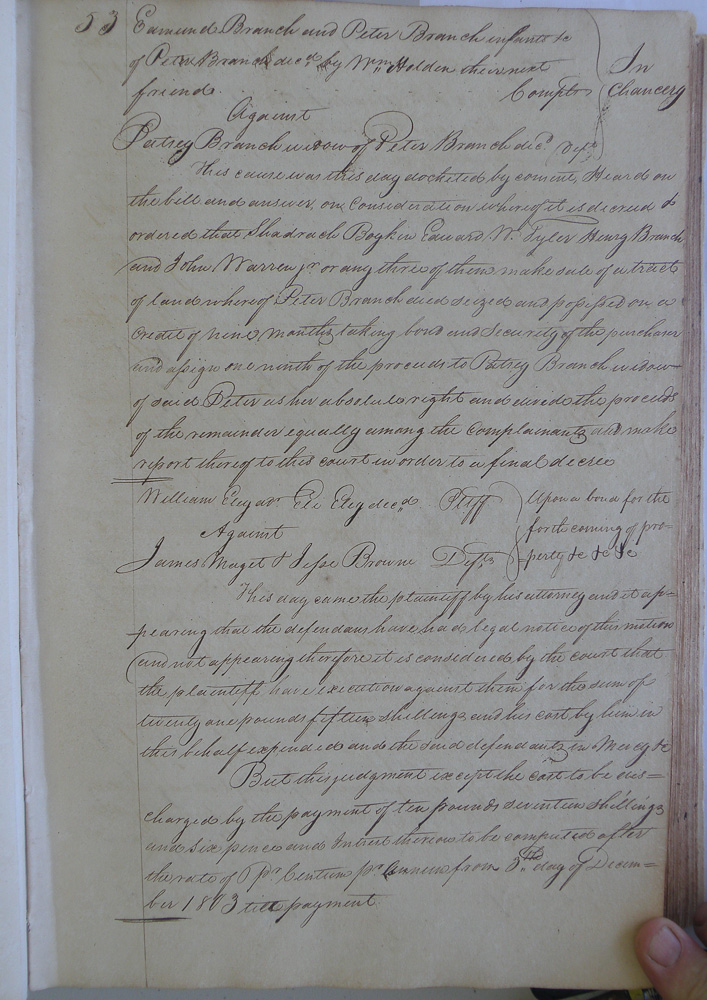 53 Edmund Branch and Peter Branch infants &c
of Peter Branch decd by Wm Holden their next
friend. Complts
In
Chancery
Against
Patsey Branch widow of Peter Branch decd Deft
This cause was this day docketed by consent, Heard on
the bill and answer, on Consideration whereof it is decreed &
ordered that Shadrach Boykin Edward W. Tyler Henry Branch
and John Warren jr or any three of them make sale of a tract
of land whereof Peter Branch died seized and possessed on a
credit of nine months, taking bond and security of the purchaser
and assign one ninth of the proceeds to Patsey Branch widow
of said Peter as her absolute right and divide the proceeds
of the remainder equally among the Complainants and make
report thereof to this court in order to a final decree
William Eley adr Eli Eley decd Pltff
Against
James Maget & Jesse Browne Defts
Upon a bond for the
forthcoming of pro-
perty &c &c &c
This day came the plaintiff by his attorney and it ap-
pearing that the defendans have had legal notice of this motion
and not appearing therefore it is considered by the court that
the plaintiff have execution against them for the sum of
twenty one pounds fifteen shillings and his cost by him in
this behalf expended and the said defendants in Mercy &c
But this judgment except the cost to be dis=
charged by the payment of ten pounds seventeen shillings
and six pence and Interest thereon to be computed after
the rate of pr Centum pr Annum from 5th day of Decem-
ber 1803 till payment